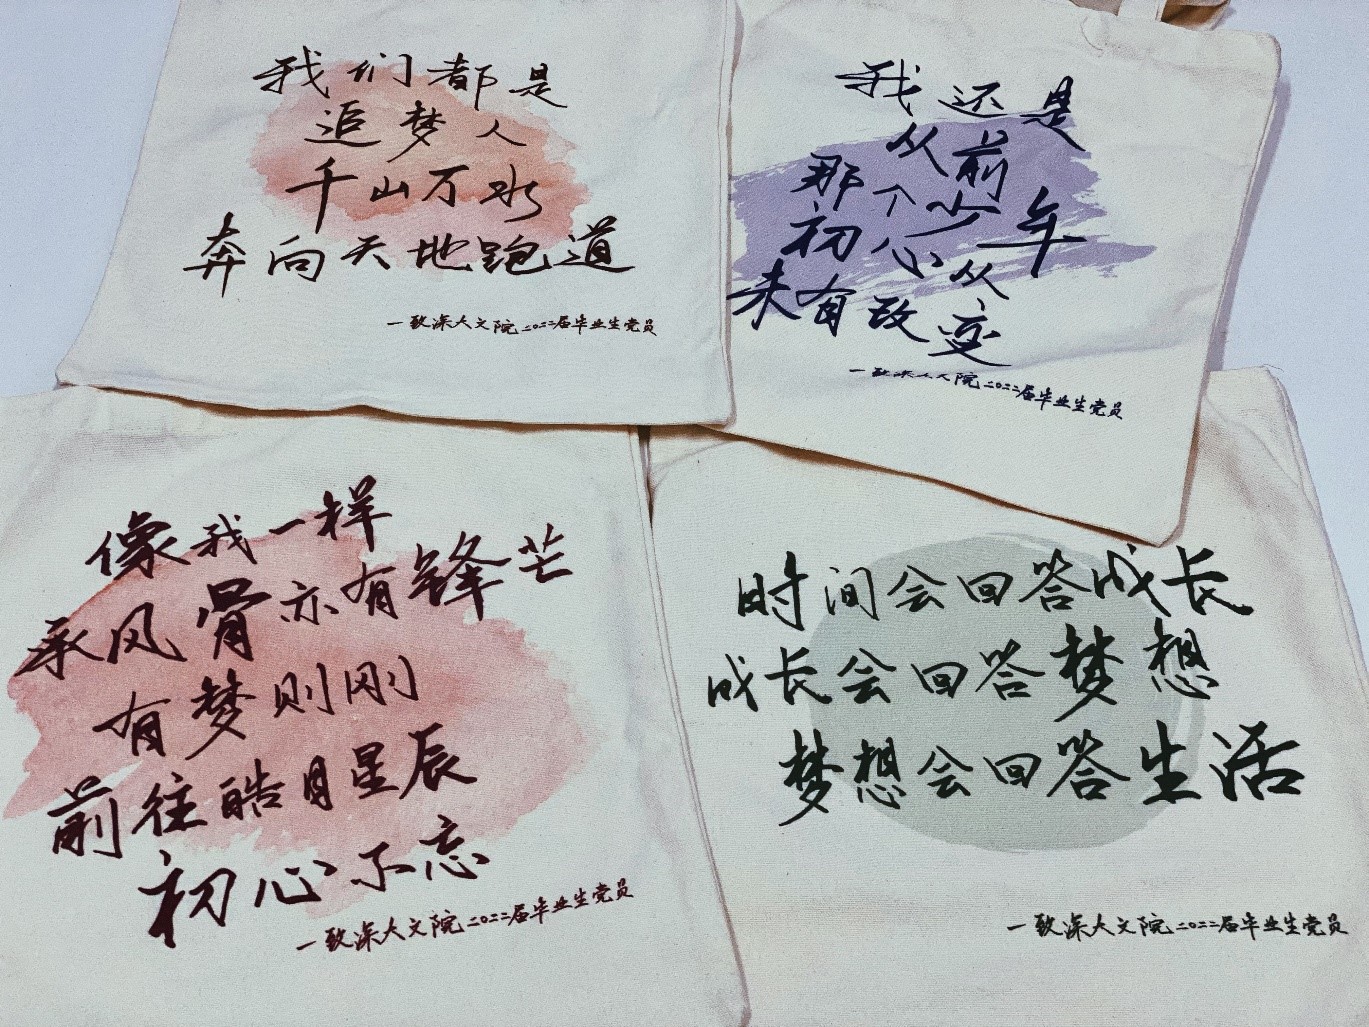 我们都是
追梦人
千山万水
奔向天地跑道
一致深大文院二〇二二届毕业生党员
我还是
从前
那个少年
初心从
未有改变
一致深大文院二〇二二届毕业生党员
像我一样
承风骨亦有锋芒
有梦则刚
前往皓月星辰
初心不忘
一致深大文院二〇二二届毕业生党员
时间会回答成长
成长会回答梦想
梦想会回答生活
一致深大文院二〇二二届毕业生党员